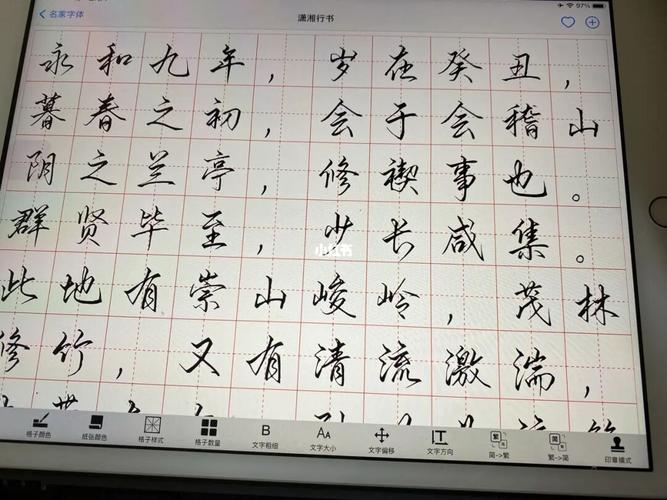 97%
名家字体
潇湘行书
永和九年，岁在癸丑，
暮春之初，会于会稽山
阴之兰亭，修禊事也。
群贤毕至，少长咸集。
小红书
此地有崇山峻岭，茂林
修竹，又有清流激湍，
格子颜色 纸张颜色 格子样式 格子数量 文字粗细 文字大小 文字偏移 文字方向 简->繁 繁->简 印章模式